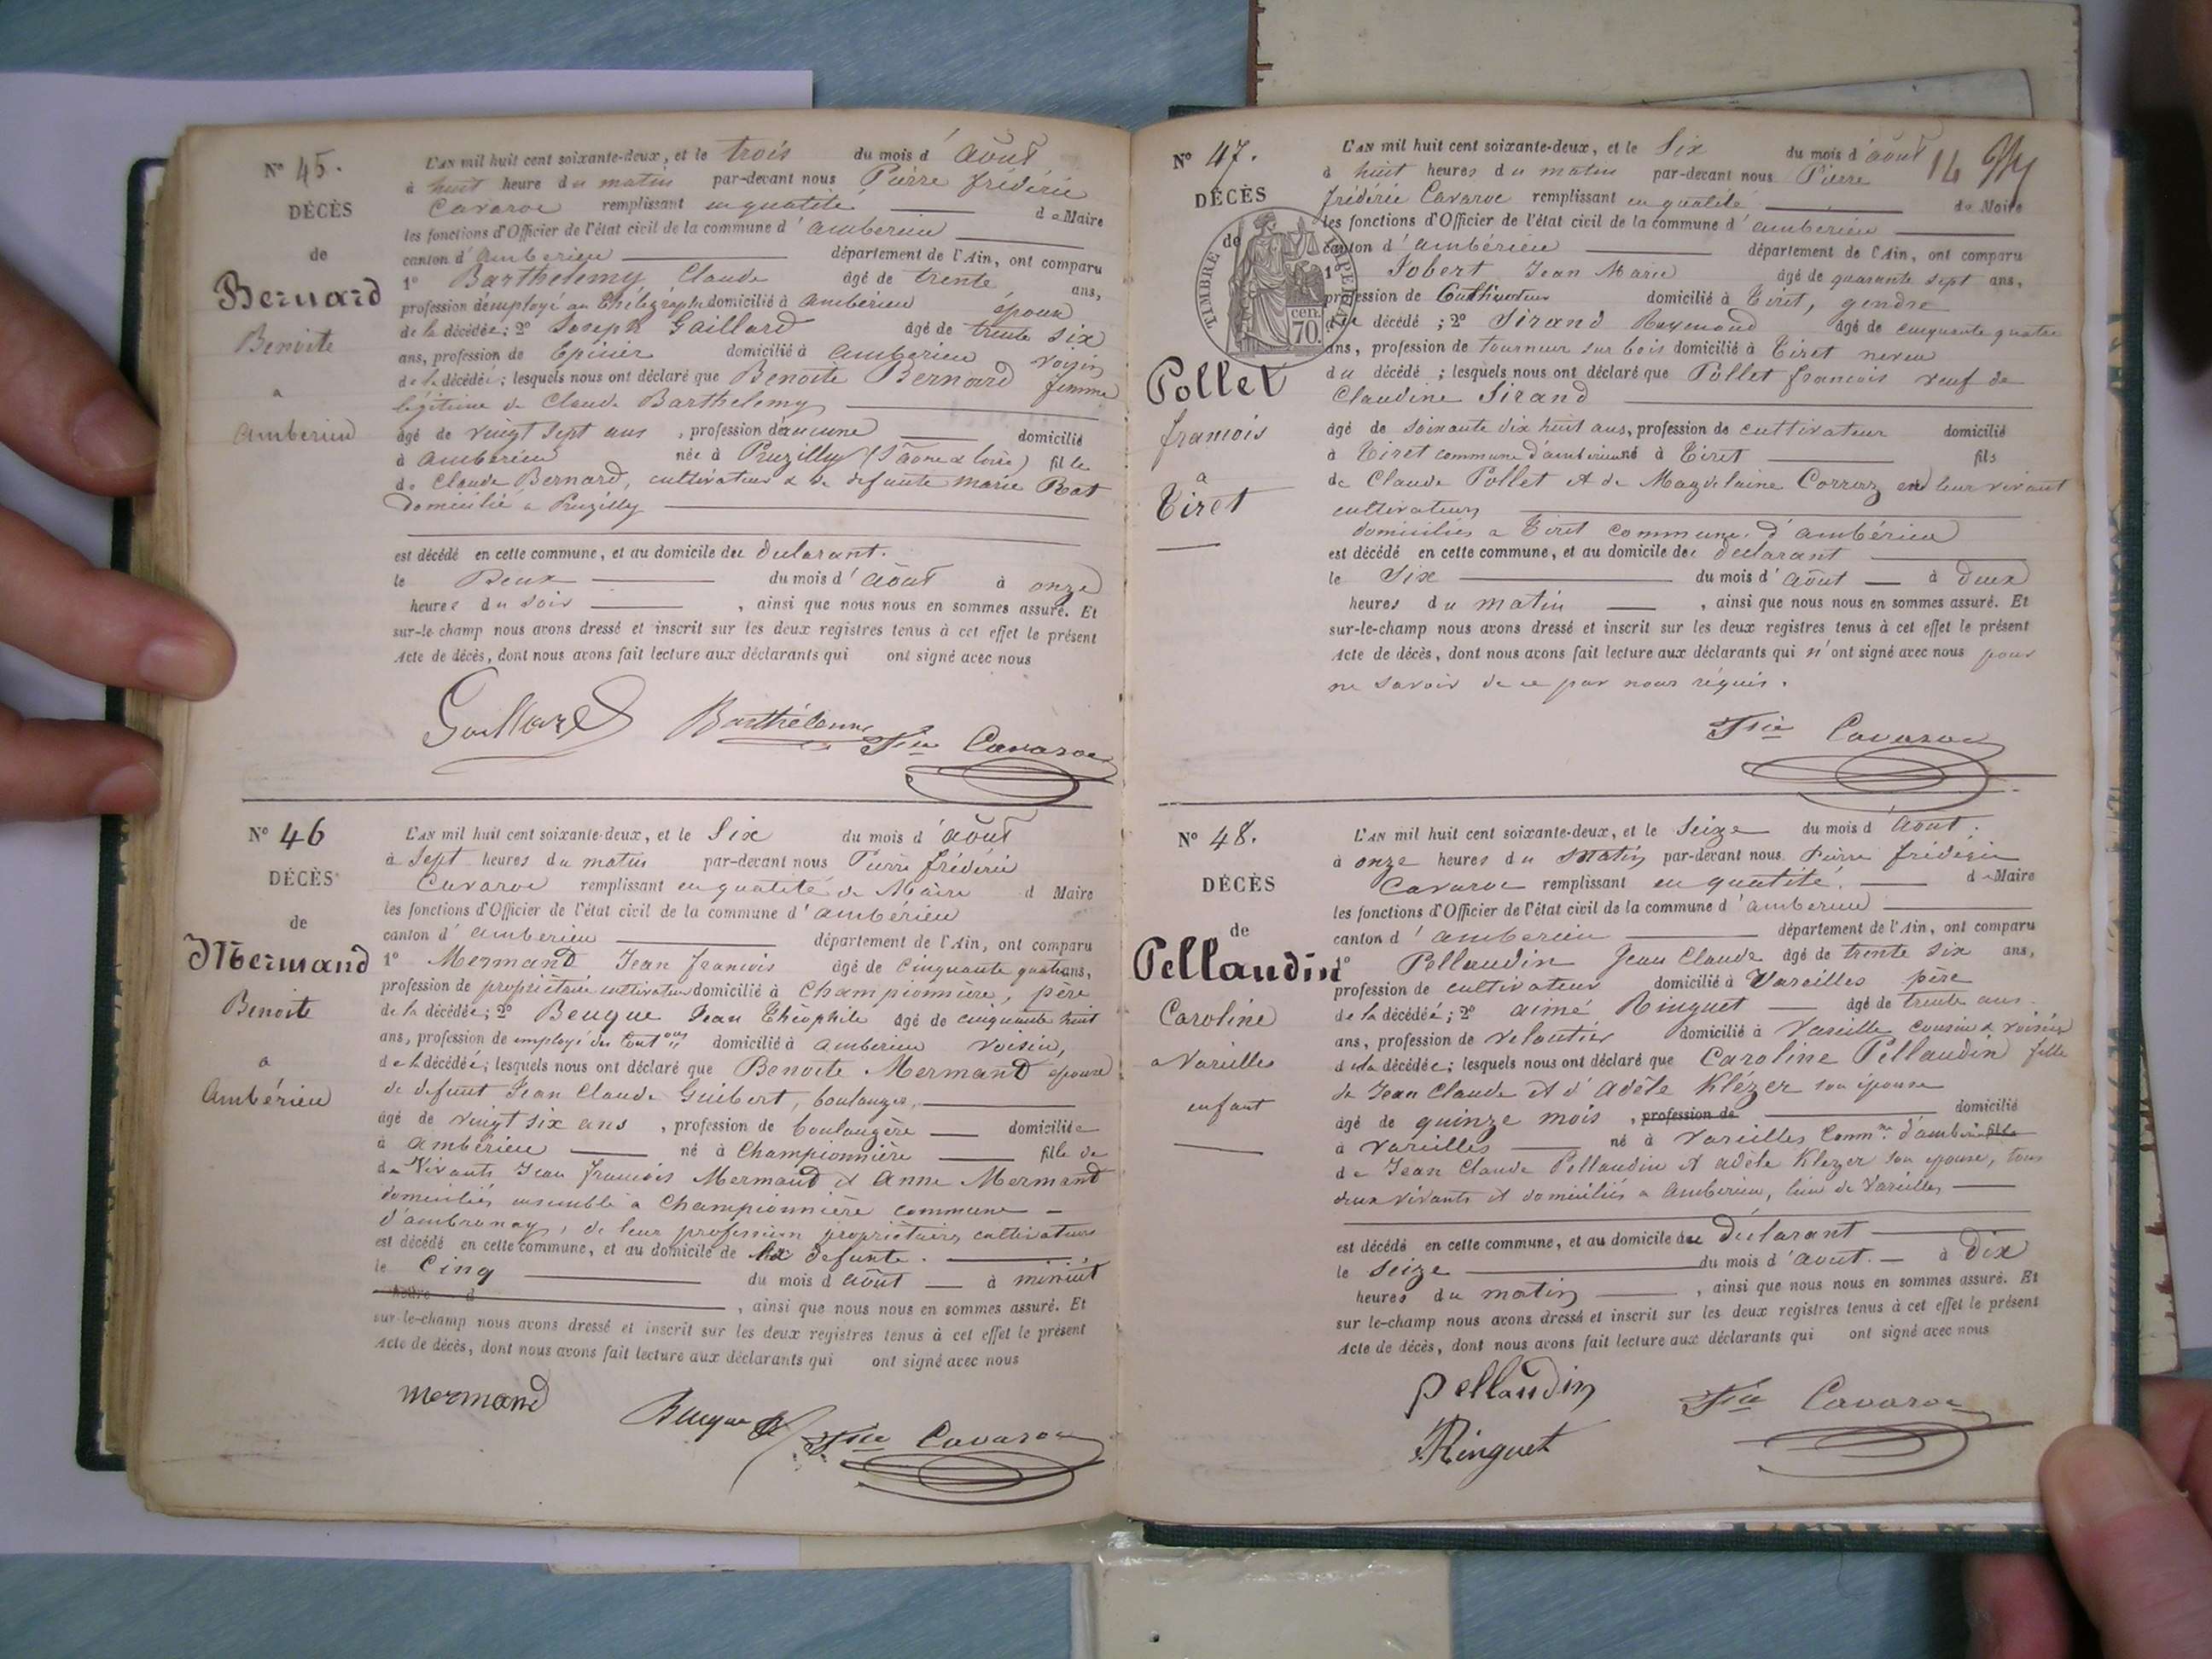 N° 45.
DÉCÈS
de
Bernard
Benoite
a
Ambérieu
L'AN mil huit cent soixante-deux, et le trois du mois d'août
à huit heure du matin par-devant nous Pierre frédéric
Cavaroc remplissant en qualité de Maire
les fonctions d'Officier de l'état civil de la commune d'ambérieu
canton d'ambérieu département de l'Ain, ont comparu
1° Barthelemy Claude âgé de trente ans,
profession d'employé au Thélégraphe domicilié à ambérieu époux
de la décédée; 2° Joseph Gaillard âgé de trente six
ans, profession de Epicier domicilié à ambérieu voisin
de la décédée; lesquels nous ont déclaré que Benoite Bernard femme
légitime de Claude Barthelemy
âgé de vingt sept ans, profession d'aucune domicilié
à ambérieu née à Pruzilly (Saône & loire) fille
de Claude Bernard, cultivateur & de defunte Marie Rat
domicilié à Pruzilly
est décédé en cette commune, et au domicile du déclarant.
le Deux du mois d'août à onze
heures du soir, ainsi que nous nous en sommes assuré. Et
sur-le-champ nous avons dressé et inscrit sur les deux registres tenus à cet effet le présent
Acte de décès, dont nous avons fait lecture aux déclarants qui ont signé avec nous
Gaillard Barthélemy Fric Cavaroc
N° 46
DÉCÈS
de
Mermand
Benoite
a
Ambérieu
L'AN mil huit cent soixante-deux, et le Six du mois d'août
à Sept heures du matin par-devant nous Pierre frédéric
Cavaroc remplissant en qualité de Maire d Maire
les fonctions d'Officier de l'état civil de la commune d'ambérieu
canton d'ambérieu département de l'Ain, ont comparu
1° Mermand Jean francois âgé de cinquante quatre ans,
profession de propriétaire cultivateur domicilié à Championnière, père
de la décédée; 2° Beuque Jean Théophile âgé de cinquante huit
ans, profession de employé des domicilié à ambérieu voisin,
de la décédée; lesquels nous ont déclaré que Benoite Mermand épouse
de défunt Jean Claude Guibert, boulanger,
âgé de vingt six ans, profession de boulangère domiciliée
à ambérieu né à Championnière fille de
de Vivants Jean francois Mermand & Anne Mermand
domiciliés ensemble a Championnière commune
d'ambronay, de leur profession propriétaires cultivateurs
est décédé en cette commune, et au domicile de la defunte.
le Cinq du mois d'août à minuit
heure d, ainsi que nous nous en sommes assuré. Et
sur-le-champ nous avons dressé et inscrit sur les deux registres tenus à cet effet le présent
Acte de décès, dont nous avons fait lecture aux déclarants qui ont signé avec nous
mermand Beuque Fric Cavaroc
N° 47.
DÉCÈS
de
Pollet
francois
a
Tiret
TIMBRE IMPERIAL
70 cen.
14
L'AN mil huit cent soixante-deux, et le Six du mois d'août
à huit heures du matin par-devant nous Pierre
frédéric Cavaroc remplissant en qualité de Maire
les fonctions d'Officier de l'état civil de la commune d'ambérieu
canton d'ambérieu département de l'Ain, ont comparu
1° Jobert Jean Marie âgé de quarante sept ans,
profession de Cultivateur domicilié à Tiret, gendre
du décédé; 2° Sirand Raymond âgé de cinquante quatre
ans, profession de tourneur sur bois domicilié à Tiret neveu
du décédé; lesquels nous ont déclaré que Pollet francois veuf de
Claudine Sirand
âgé de soixante dix huit ans, profession de cultivateur domicilié
à Tiret commune d'ambérieu né à Tiret fils
de Claude Pollet et de Magdelaine en leur vivant
cultivateurs
domiciliés a Tiret commune d'ambérieu
est décédé en cette commune, et au domicile du déclarant
le Six du mois d'août à Deux
heures du matin, ainsi que nous nous en sommes assuré. Et
sur-le-champ nous avons dressé et inscrit sur les deux registres tenus à cet effet le présent
Acte de décès, dont nous avons fait lecture aux déclarants qui n'ont signé avec nous pour
ne savoir de ce par nous requis.
Fric Cavaroc
N° 48.
DÉCÈS
de
Pellaudin
Caroline
a Vareilles
enfant
L'AN mil huit cent soixante-deux, et le Seize du mois d'août.
à onze heures du matin par-devant nous Pierre frédéric
Cavaroc remplissant en qualité de Maire
les fonctions d'Officier de l'état civil de la commune d'ambérieu
canton d'ambérieu département de l'Ain, ont comparu
1° Pellaudin Jean Claude âgé de trente six ans,
profession de cultivateur domicilié à Vareilles père
de la décédée; 2° aimé Ringuet âgé de trente ans
ans, profession de veloutier domicilié à Vareille cousin & voisin
de la décédée; lesquels nous ont déclaré que Caroline Pellaudin fille
de Jean Claude et d'Adèle Klézer son épouse
âgé de quinze mois, profession de domicilié
à Vareilles né à Vareilles Comm.ne d'ambérieu fille
de Jean Claude Pellaudin et adèle Klezer son epouse, tous
deux vivants et domiciliés a Ambérieu, lieu de Vareilles
est décédé en cette commune, et au domicile du Déclarant
le Seize du mois d'aout. à Dix
heures du matin, ainsi que nous nous en sommes assuré. Et
sur le-champ nous avons dressé et inscrit sur les deux registres tenus à cet effet le présent
Acte de décès, dont nous avons fait lecture aux déclarants qui ont signé avec nous
pellaudin Fric Cavaroc
Ringuet